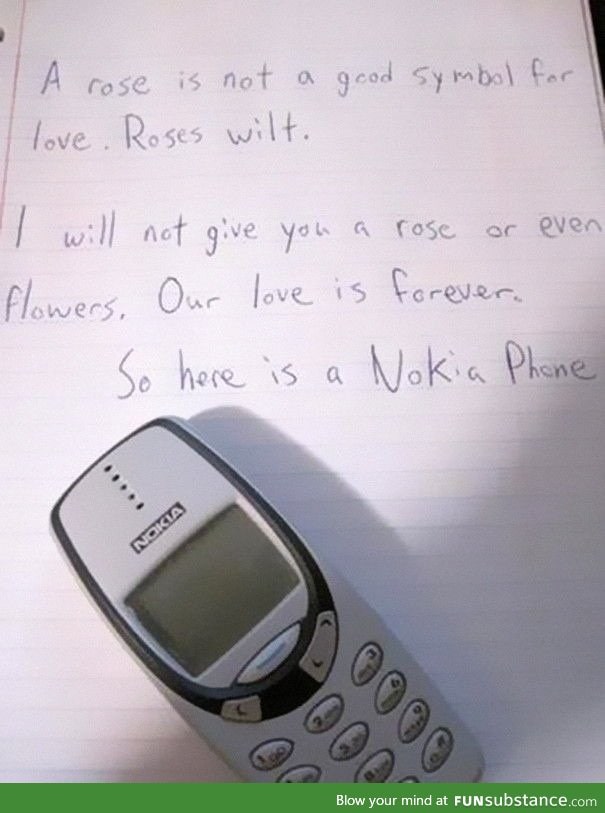 A rose is not a good symbol for
love. Roses wilt.
I will not give you a rose or even
flowers. Our love is forever.
So here is a Nokia Phone
NOKIA
Blow your mind at FUNsubstance.com